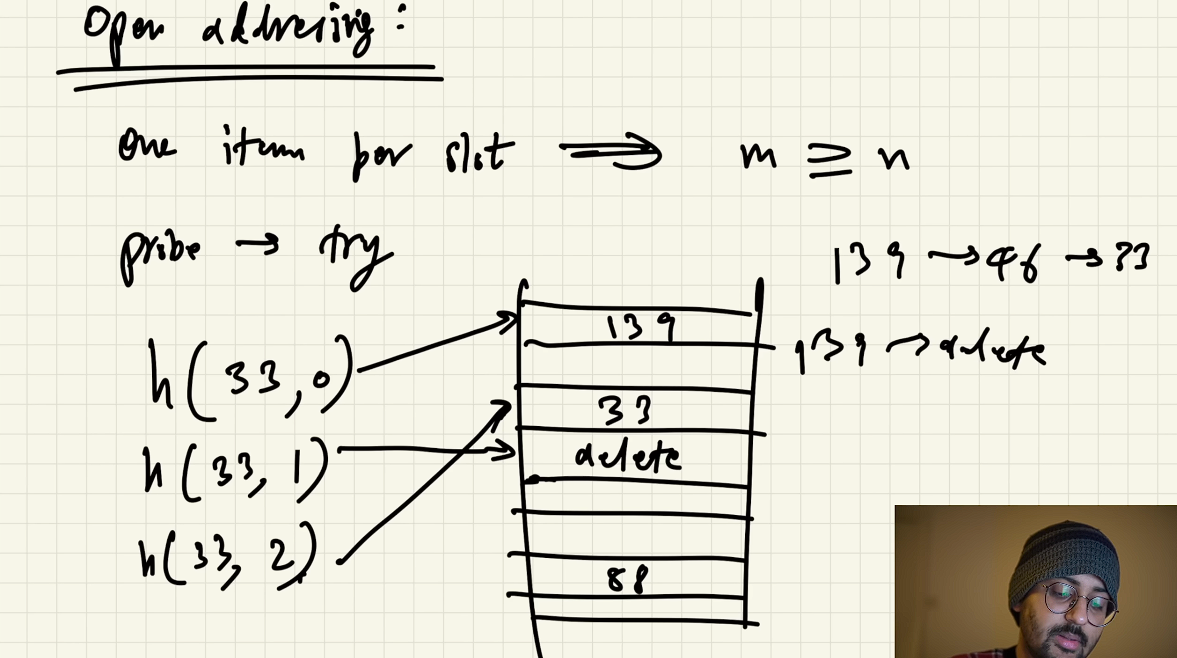 Open addressing:
one item per slot ⟹ m ≥ n
probe → try
139 → 46 → 33
139 → delete
h(33,0)
h(33,1)
h(33,2)
139
33
delete
88